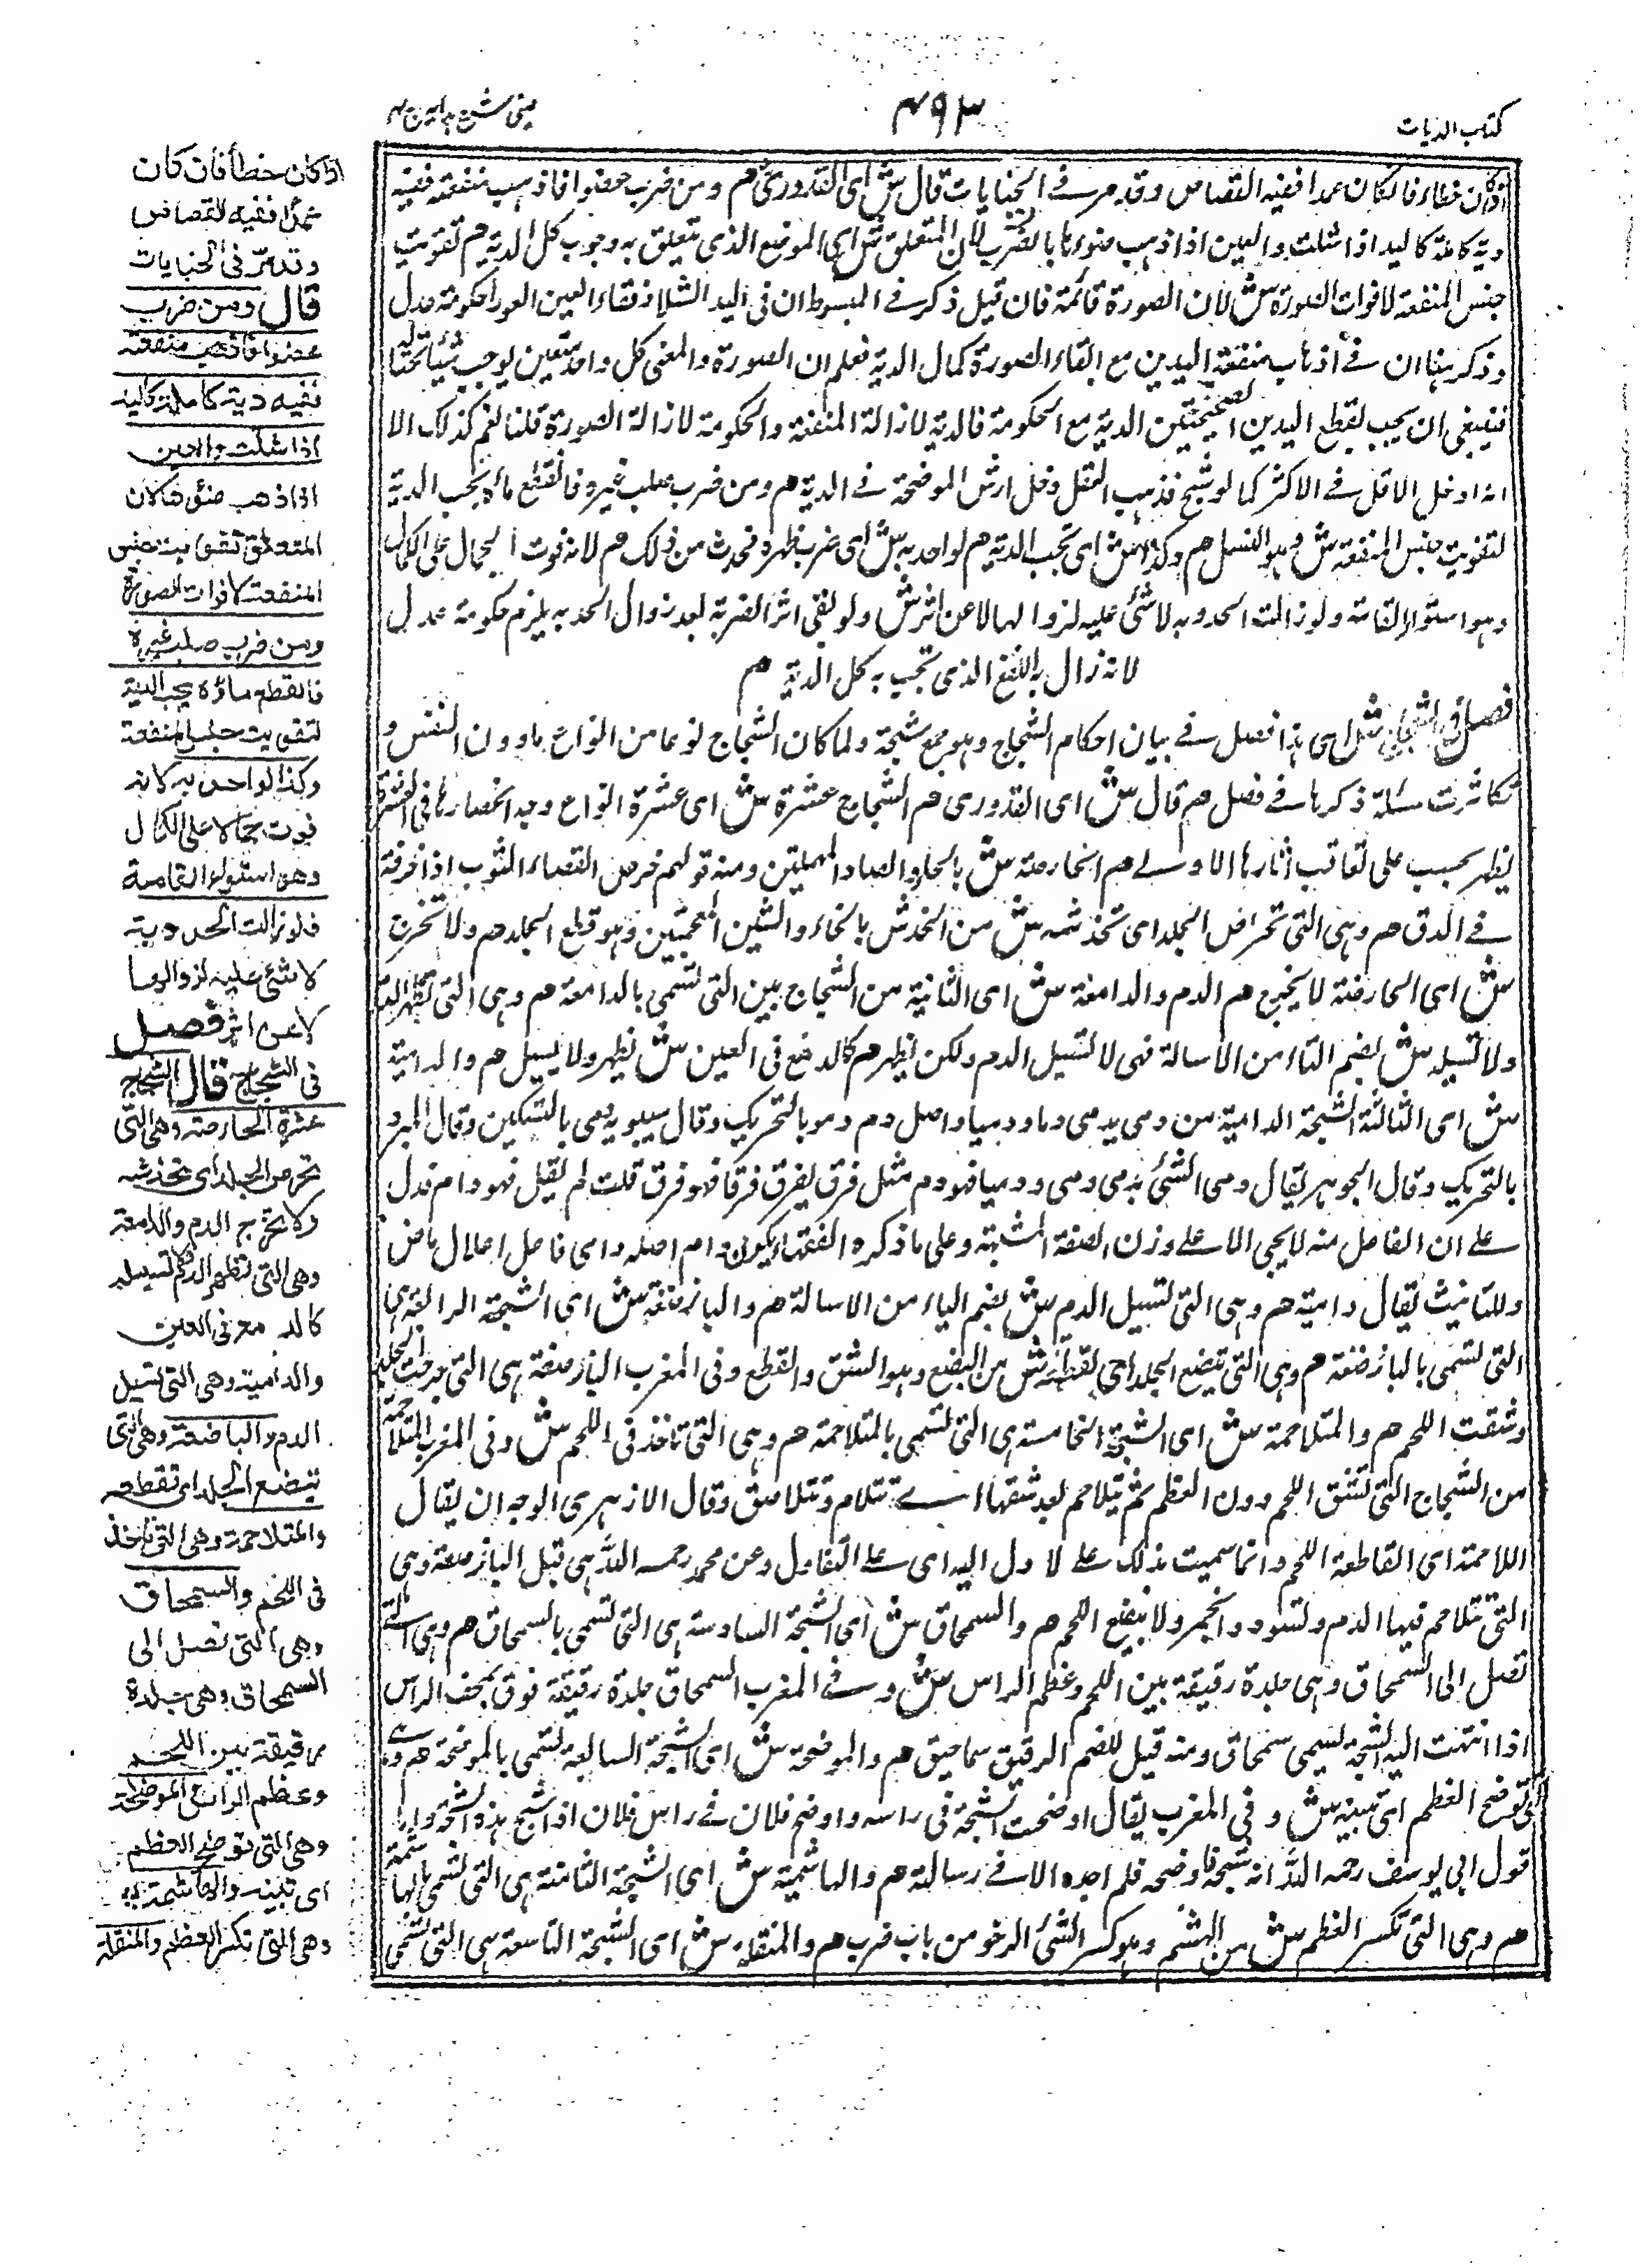 كتاب الديات
٤٩٣
عينى شرح هدايه ج ٤
اذا كان خطاء فان كان عمدا ففيه القصاص وقد مر فى الجنايات قال ش اى القدورى م ومن ضرب عضوا فاذهب منفعته ففيه
دية كاملة كاليد اذا شلت والعين اذا ذهب ضوءها بالضرب لان المتعلق ش اى الموضع الذى يتعلق به وجوب كل الدية م تفويت
جنس المنفعة لا فوات الصورة ش لان الصورة قائمة فان قيل ذكر فى المبسوط ان فى اليد الشلاء وفقاء العين العوراء حكومة عدل
وذكر هنا ان فى اذهاب منفعة اليدين مع ابقاء الصورة كمال الدية فعلم ان الصورة والمعنى كل واحد متعين يوجب شيئا
فينبغى ان يجب بقطع اليدين الصحيحتين الدية مع الحكومة فالدية لازالة المنفعة والحكومة لازالة الصورة قلنا نعم كذلك الا
انه ادخل الاقل فى الاكثر كما لو شج فذهب العقل دخل ارش الموضحة فى الدية م ومن ضرب صلب غيره فانقطع ماءه يجب الدية
لتفويت جنس المنفعة ش وهو النسل م وكذا ش اى تجب الدية م لو احدبه ش اى ضرب ظهره فحدث من ذلك م لانه فوت الجمال على الكمال
وهو استواء القامة ولو زالت الحدوبة لا شئ عليه لزوالها لا عن اثر ش ولو بقى اثر الضربة بعد زوال الحدبة يلزم حكومة عدل
لانه زال به النفع الذى تجب به كل الدية م
فصل فى الشجاج ش اى هذا فصل فى بيان احكام الشجاج وهو جمع شجة ولما كان الشجاج نوعا من انواع ما دون النفس و
تكاثرت مسئلة ذكرها فى فصل م قال ش اى القدورى م الشجاج عشرة ش اى عشرة انواع وجه انحصارها فى العشرة
يظهر بحسب على تعاقب اثارها الاولى م الحارصة ش بالحاء والصاد المهملتين ومنه قولهم حرص القصار الثوب اذا خرقه
فى الدق م وهى التى تحرص الجلد اى تخدشه ش من الخدش بالخاء والشين المعجمتين وهو قطع الجلد م ولا تخرج
ش اى الحارصة لا يخرج م الدم والدامعة ش اى الثانية من الشجاج بين التى تسمى بالدامعة م وهى التى تظهر الدم
ولا تسيله ش بضم التاء من الاسالة فهى لا تسيل الدم ولكن يظهر م كالدمع فى العين ش يظهر ولا يسيل م والدامية
ش اى الثالثة الشجة الدامية من دمى يدمى دما ودميا واصل دم دمو بالتحريك وقال سيبويه دمى بالتسكين وقال المبرد
بالتحريك وقال الجوهر يقال دمى الشئ يدمى دمى ودميا فهو دم مثل فرق يفرق فرقا فهو فرق قلت لم يقل فهو دام فدل
على ان الفاعل منه لا يجى الا على وزن الصفة المشبهة وعلى ما ذكره الفقهاء يكون دام اصله دامى فاعل اعلال ماض
وللتانيث يقال دامية م وهى التى تسيل الدم ش بضم الياء من الاسالة م والباضعة ش اى الشجة الرابعة هى
التى تسمى بالباضعة م وهى التى تبضع الجلد اى تقطعه ش من البضع وهو الشق والقطع وفى المغرب الباضعة هى التى جرحت الجلد
وشقت اللحم م والمتلاحمة ش اى الشجة الخامسة هى التى تسمى بالمتلاحمة م وهى التى تاخذ فى اللحم ش وفى المغرب المتلاحمة
من الشجاج التى تشق اللحم دون العظم ثم يتلاحم بعد شقها اى تتلام وتتلاصق وقال الازهرى الوجه ان يقال
اللاحمة اى القاطعة اللحم وانما سميت بذلك على لا دل اليه اى على التفاول وعن محمد رحمه الله هى قبل الباضعة وهى
التى تتلاحم فيها الدم وتسود وانحمر ولا يبضع اللحم م والسمحاق ش اى الشجة السادسة هى التى تسمى بالسمحاق م وهى التى
تصل الى السمحاق وهى جلدة رقيقة بين اللحم وعظم الراس ش وفى المغرب السمحاق جلدة رقيقة فوق قحف الراس
اذا انتهت اليه الشجة تسمى سمحاق ومنه قيل للغيم الرقيق سماحيق م والموضحة ش اى الشجة السابعة تسمى بالموضحة م وهى
التى توضح العظم اى تبينه ش وفى المغرب يقال اوضحت الشجة فى راسه واوضح فلان فى راس فلان اذا شج هذه الشجة واما
قول ابى يوسف رحمه الله انه شجه فاوضحه فلم اجده الا فى رسالته م والهاشمة ش اى الشجة الثامنة هى التى تسمى بالهاشمة
م وهى التى تكسر العظم ش من الهشم وهو كسر الشئ الرخو من باب ضرب م والمنقلة ش اى الشجة التاسعة هى التى تسمى
اذا كان خطأ فان كان
عمدا ففيه القصاص
وقد مر فى الجنايات
قال ومن ضرب
عضوا فاذهب منفعته
ففيه دية كاملة كاليد
اذا شلت والعين
اذا ذهب ضوئها لان
المتعلق تفويت جنس
المنفعة لا فوات الصورة
ومن ضرب صلب غيره
فانقطع ماؤه يجب الدية
لتفويت جنس المنفعة
وكذا لو احدبه لانه
فوت جمالا على الكمال
وهو استواء القامة
فلو زالت الحدوبة
لا شئ عليه لزوالها
لا عن اثر فصل
فى الشجاج قال الشجاج
عشرة الحارصة وهى التى
تحرص الجلد اى تخدشه
ولا تخرج الدم والدامعة
وهى التى تظهر الدم ولا تسيله
كالدمع فى العين
والدامية وهى التى تسيل
الدم والباضعة وهى التى
تبضع الجلد اى تقطعه
والمتلاحمة وهى التى تأخذ
فى اللحم والسمحاق
وهى التى تصل الى
السمحاق وهى جلدة
رقيقة بين اللحم
وعظم الرأس والموضحة
وهى التى توضح العظم
اى تبينه والهاشمة
وهى التى تكسر العظم والمنقلة